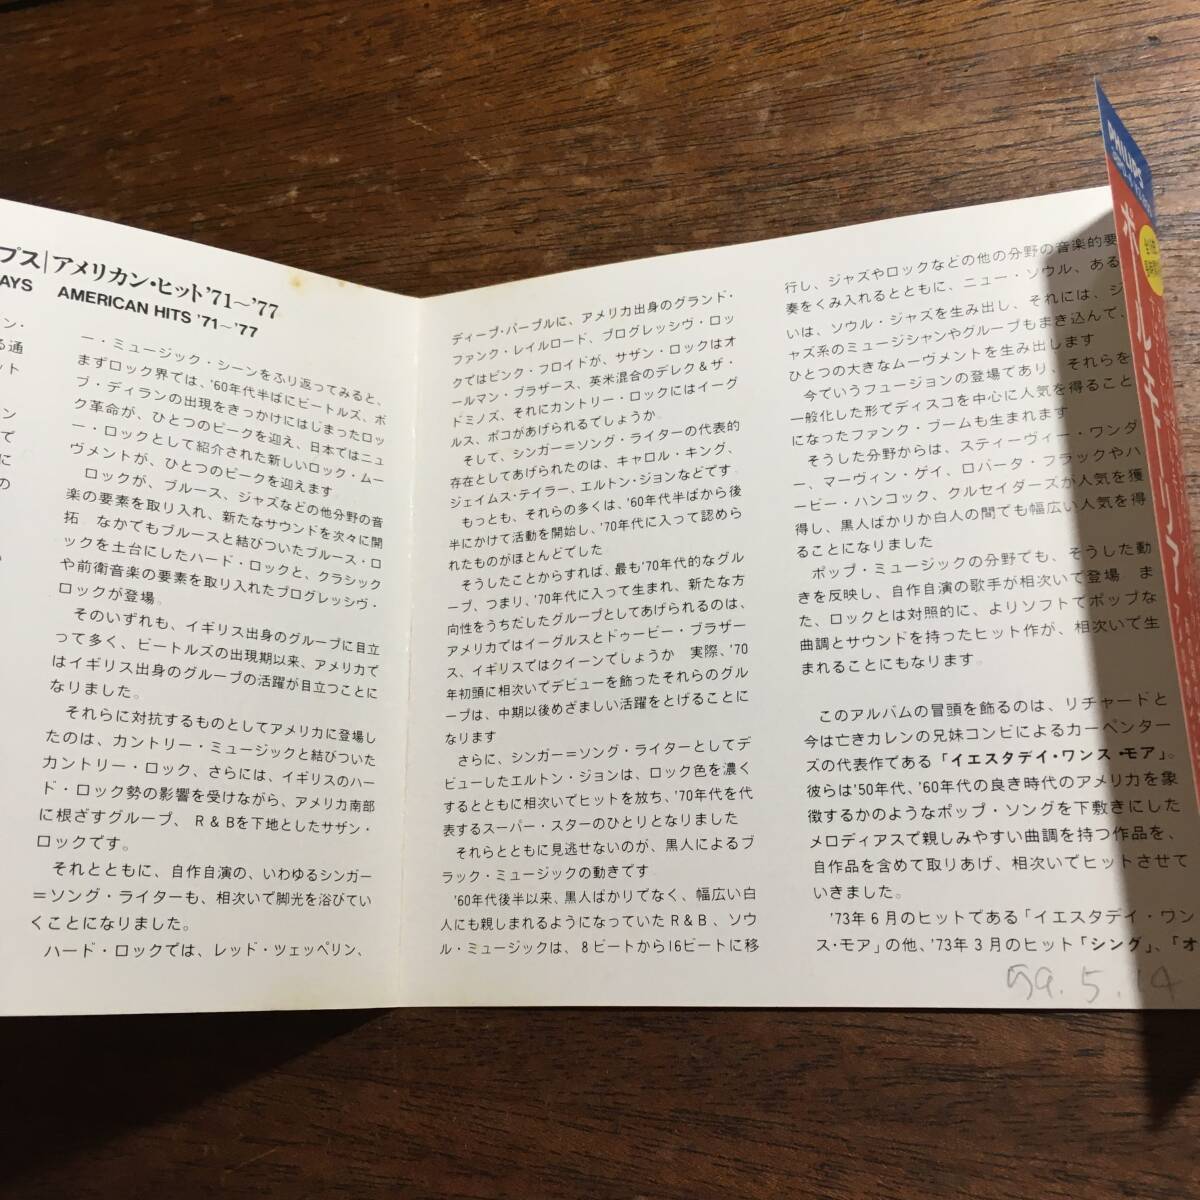 プス|アメリカン・ヒット'71～'77
AYS AMERICAN HITS '71～'77
ー・ミュージック・シーンをふり返ってみると、
まずロック界では、'60年代半ばにビートルズ、ボ
ブ・ディランの出現をきっかけにはじまったロッ
ク革命が、ひとつのピークを迎え、日本ではニュ
ー・ロックとして紹介された新しいロック・ムー
ヴメントが、ひとつのピークを迎えます
ロックが、ブルース、ジャズなどの他分野の音
楽の要素を取り入れ、新たなサウンドを次々に開
拓 なかでもブルースと結びついたブルース・ロ
ックを土台にしたハード・ロックと、クラシック
や前衛音楽の要素を取り入れたプログレッシヴ・
ロックが登場。
そのいずれも、イギリス出身のグループに目立
って多く、ビートルズの出現期以来、アメリカで
はイギリス出身のグループの活躍が目立つことに
なりました。
それらに対抗するものとしてアメリカに登場し
たのは、カントリー・ミュージックと結びついた
カントリー・ロック、さらには、イギリスのハー
ド・ロック勢の影響を受けながら、アメリカ南部
に根ざすグループ、R＆Bを下地としたサザン・
ロックです。
それとともに、自作自演の、いわゆるシンガー
＝ソング・ライターも、相次いで脚光を浴びてい
くことになりました。
ハード・ロックでは、レッド・ツェッペリン、
ディープ・パープルに、アメリカ出身のグランド・
ファンク・レイルロード、プログレッシヴ・ロッ
クではピンク・フロイドが、サザン・ロックはオ
ールマン・ブラザース、英米混合のデレク＆ザ・
ドミノズ、それにカントリー・ロックにはイーグ
ルス、ポコがあげられるでしょうか。
そして、シンガー＝ソング・ライターの代表的
存在としてあげられたのは、キャロル・キング、
ジェイムス・テイラー、エルトン・ジョンなどです
もっとも、それらの多くは、'60年代半ばから後
半にかけて活動を開始し、'70年代に入って認めら
れたものがほとんどでした
そうしたことからすれば、最も'70年代的なグル
ープ、つまり、'70年代に入って生まれ、新たな方
向性をうちだしたグループとしてあげられるのは、
アメリカではイーグルスとドゥービー・ブラザー
ス、イギリスではクイーンでしょうか 実際、'70
年初頭に相次いでデビューを飾ったそれらのグル
ープは、中期以後めざましい活躍をとげることに
なります
さらに、シンガー＝ソング・ライターとしてデ
ビューしたエルトン・ジョンは、ロック色を濃く
するとともに相次いでヒットを放ち、'70年代を代
表するスーパー・スターのひとりとなりました
それらとともに見逃せないのが、黒人によるブ
ラック・ミュージックの動きです
'60年代後半以来、黒人ばかりでなく、幅広い白
人にも親しまれるようになっていたR＆B、ソウ
ル・ミュージックは、8ビートから16ビートに移
行し、ジャズやロックなどの他の分野の音楽的要
奏をくみ入れるとともに、ニュー・ソウル、ある
いは、ソウル・ジャズを生み出し、それには、ジ
ャズ系のミュージシャンやグループもまき込んで、
ひとつの大きなムーヴメントを生み出します
今でいうフュージョンの登場であり、それらを
一般化した形でディスコを中心に人気を得ること
になったファンク・ブームも生まれます
そうした分野からは、スティーヴィー・ワンダ
ー、マーヴィン・ゲイ、ロバータ・フラックやハ
ービー・ハンコック、クルセイダーズが人気を獲
得し、黒人ばかりか白人の間でも幅広い人気を得
ることになりました
ポップ・ミュージックの分野でも、そうした動
きを反映し、自作自演の歌手が相次いで登場 ま
た、ロックとは対照的に、よりソフトでポップな
曲調とサウンドを持ったヒット作が、相次いで生
まれることにもなります。
このアルバムの冒頭を飾るのは、リチャードと
今は亡きカレンの兄妹コンビによるカーペンター
ズの代表作である「イエスタデイ・ワンス・モア」。
彼らは'50年代、'60年代の良き時代のアメリカを象
徴するかのようなポップ・ソングを下敷きにした
メロディアスで親しみやすい曲調を持つ作品を、
自作品を含めて取りあげ、相次いでヒットさせて
いきました。
'73年6月のヒットである「イエスタデイ・ワン
ス・モア」の他、'73年3月のヒット「シング」、「オ
99.5.14
PHILIPS